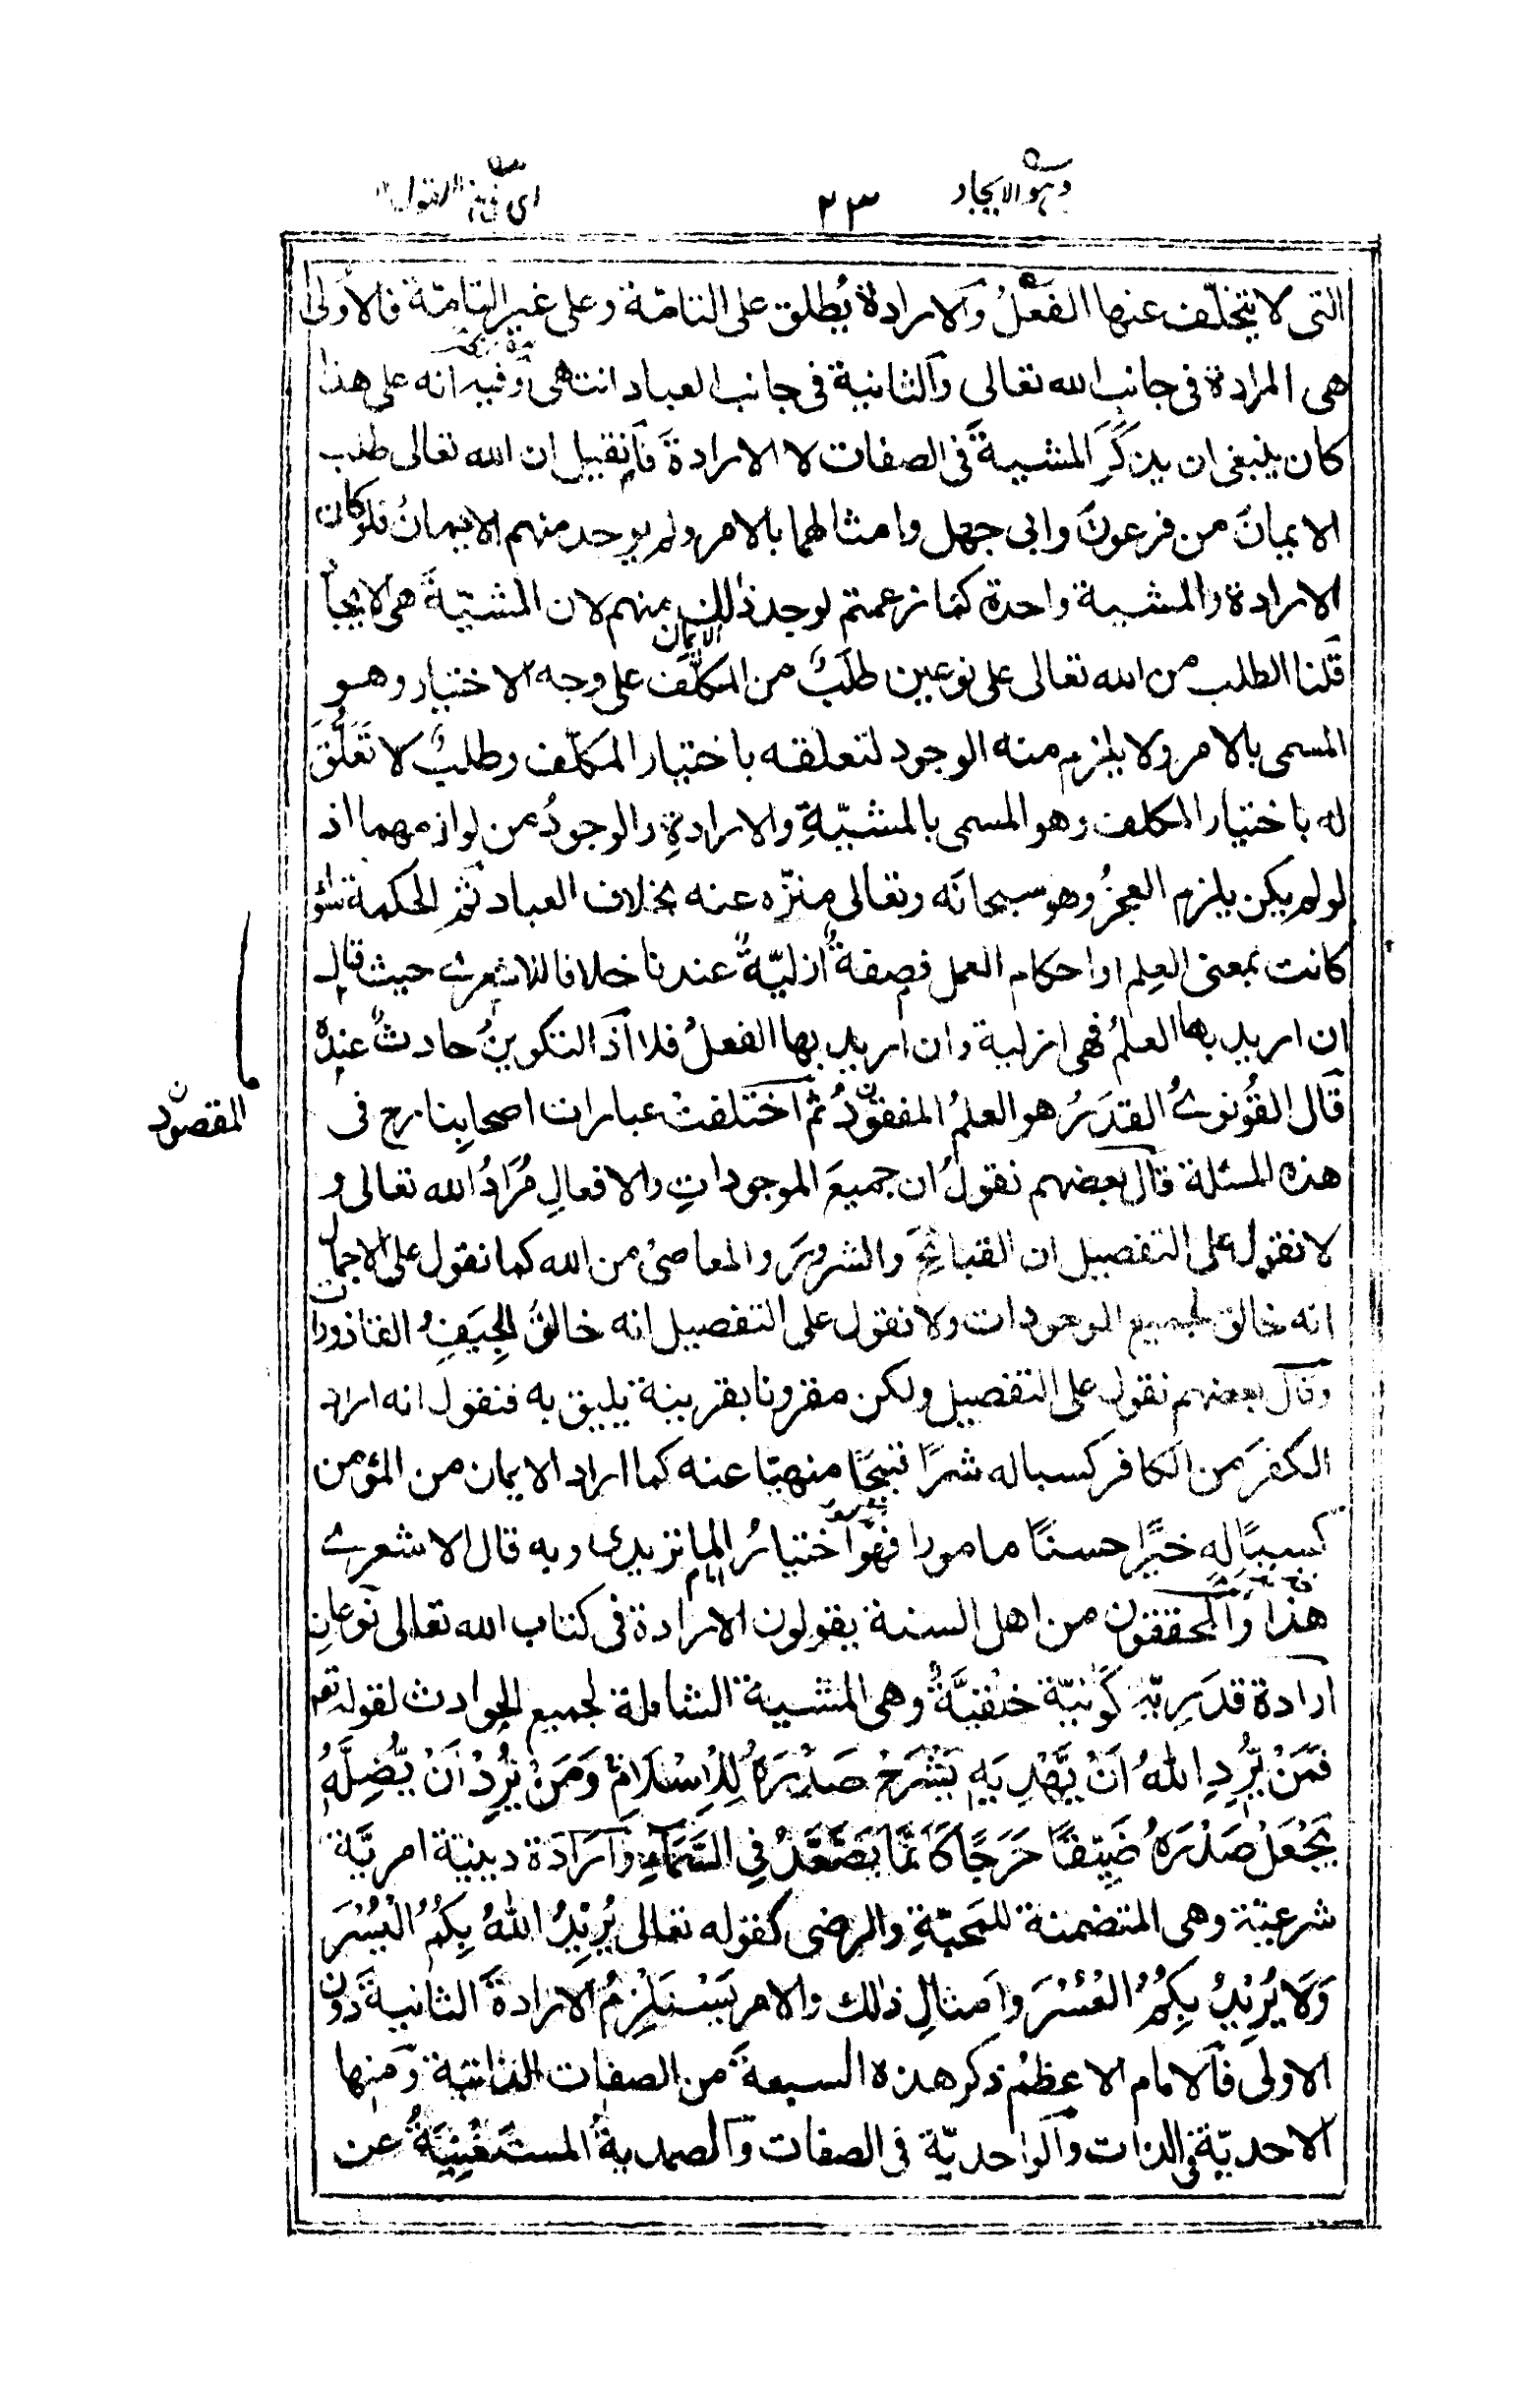 وهو الايجاد
٢٣
التى لا يتخلّف عنها الفعلُ والارادة يُطلق على التامّة وعلى غير التامّة فالاولى
هى المرادة فى جانب الله تعالى والثانية فى جانب العباد انتهى وفيه انه على هذا
كان ينبغى ان يذكرَ المشيةَ فى الصفات لا الارادةَ فان قيل ان الله تعالى طلب
الايمانَ من فرعون وابى جهل وامثالهما بالامر ولم يوجد منهم الايمانُ فلو كان
الارادة والمشية واحدة كما زعمتم لوجد ذلك منهم لان المشيّةَ هى الايجاد
الايمان
قلنا الطلب من الله تعالى على نوعين طلبٌ من المكلّف على وجه الاختيار وهو
المسمى بالامر ولا يلزم منه الوجود لتعلقه باختيار المكلّف وطلبٌ لا تعَلُّقَ
له باختيار المكلف وهو المسمى بالمشيّةِ والارادةِ والوجودُ من لوازمهما اذ
لو لم يكن يلزم العجزُ وهو سبحانه وتعالى منزّه عنه بخلاف العباد ثم الحكمة سواء
كانت بمعنى العِلم او احكام العمل فصفةٌ ازليّةٌ عندنا خلافا للاشعرى حيث قال
ان اريد بها العلمُ فهى ازلية وان اريد بها الفعلُ فلا اذ التكوينُ حادثٌ عنده
قال القُونوىُ القدَرُ هو العلمُ المفقودُ ثم اختلفتْ عبارات اصحابِنا رح فى
المقصود ن
هذه المسئلة قال بعضهم نقولُ ان جميعَ الموجوداتِ والافعالِ مُرَادُ الله تعالى و
لا نقول على التفصيل ان القبائحَ والشرورَ والمعاصىَ من الله كما نقول على الاجمال
انه خالق لجميع الموجودات ولا نقول على التفصيل انه خالقُ الجِيَفِ القاذورات
وقال بعضهم نقول على التفصيل ولكن مقرونا بقرينة يليق به فنقول انه اراد
الكفرَ من الكافر كسبا له شرًا قبيحًا منهيًا عنه كما اراد الايمان من المؤمن
كسبًا له خيرًا حسنًا مامورا فهو اختيارُ الماتريدى وبه قال الاشعرى
هذا والمحققون من اهل السنة يقولون الارادة فى كتاب الله تعالى نوعانِ
ارادة قدَرِيّة كَونيّة خلقيَّةٌ وهى المشية الشاملة لجميع الحوادث لقوله تعم
فَمَنْ يُّرِدِ اللهُ اَنْ يَّهْدِيَهٗ يَشْرَحْ صَدْرَهٗ لِلْاِسْلَامِ وَمَنْ يُّرِدْ اَنْ يُّضِلَّهٗ
يَجْعَلْ صَدْرَهٗ ضَيِّقًا حَرَجًا كَاَنَّمَا يَصَّعَّدُ فِى السَّمَاءِ وارَادَة دينيّة امريّة
شرعيّة وهى المتضمنة للمَحبّةِ والرضى كقوله تعالى يُرِيْدُ اللهُ بِكُمُ الْيُسْرَ
وَلَا يُرِيْدُ بِكُمُ الْعُسْرَ وامثالِ ذلك والامر يَسْتلزِمُ الارادةَ الثانيةَ دون
الاولى فالامام الاعظمُ ذكر هذه السبعةَ من الصفات الذاتية ومنها
الاحديّة فى الذات والواحديّة فى الصفات والصمديةُ المستغنِيَةُ عن